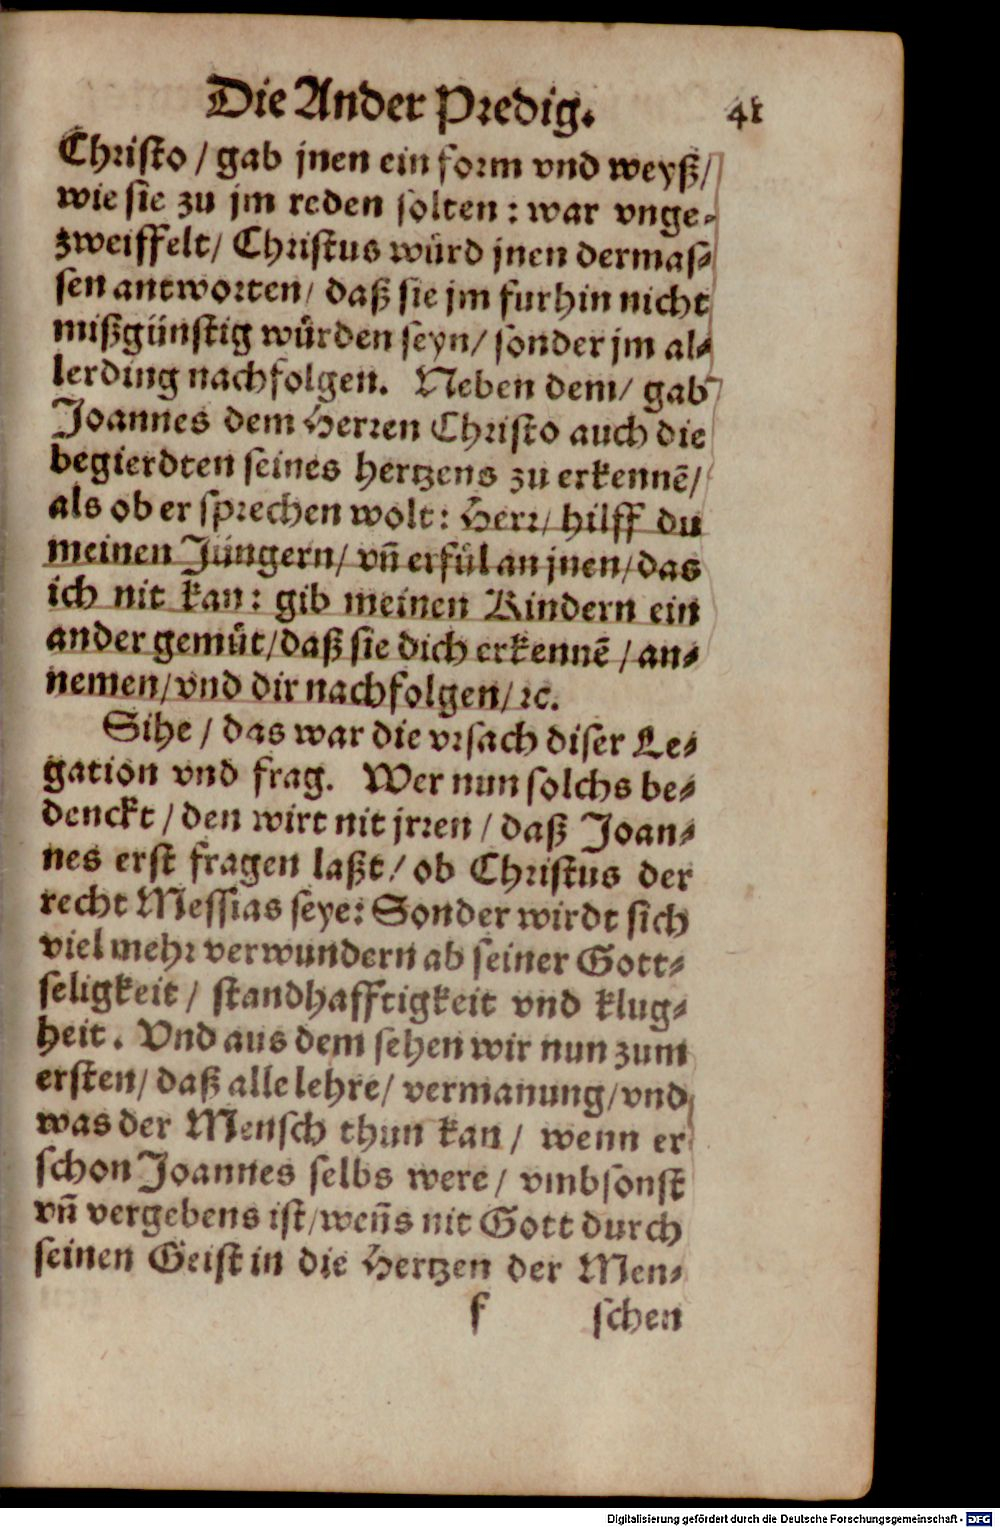 Die Ander Predig. 41
Christo / gab jnen ein form vnd weyß/
wie sie zu jm reden solten : war vnge-
zweiffelt/ Christus würd jnen dermas-
sen antworten/ daß sie jm furhin nicht
mißgünstig würden seyn/ sonder jm al-
lerding nachfolgen. Neben dem/ gab
Joannes dem Herren Christo auch die
begierdten seines hertzens zu erkennẽ/
als ob er sprechen wolt: Herr/ hilff du
meinen Jüngern/ vñ erfül an jnen/ das
ich nit kan: gib meinen Kindern ein
ander gemüt/ daß sie dich erkennẽ / an-
nemen/ vnd dir nachfolgen/ ꝛc.
Sihe / das war die vrsach diser Le-
gation vnd frag. Wer nun solchs be-
denckt / den wirt nit jrren / daß Joan-
nes erst fragen laßt/ ob Christus der
recht Messias seye: Sonder wirdt sich
viel mehr verwundern ab seiner Gott-
seligkeit / standhafftigkeit vnd klug-
heit. Vnd aus dem sehen wir nun zum
ersten/ daß alle lehre/ vermanung/ vnd
was der Mensch thun kan / wenn er
schon Joannes selbs were / vmbsonst
vñ vergebens ist/ weñs nit Gott durch
seinen Geist in die Hertzen der Men-
f schen
Digitalisierung gefördert durch die Deutsche Forschungsgemeinschaft - DFG